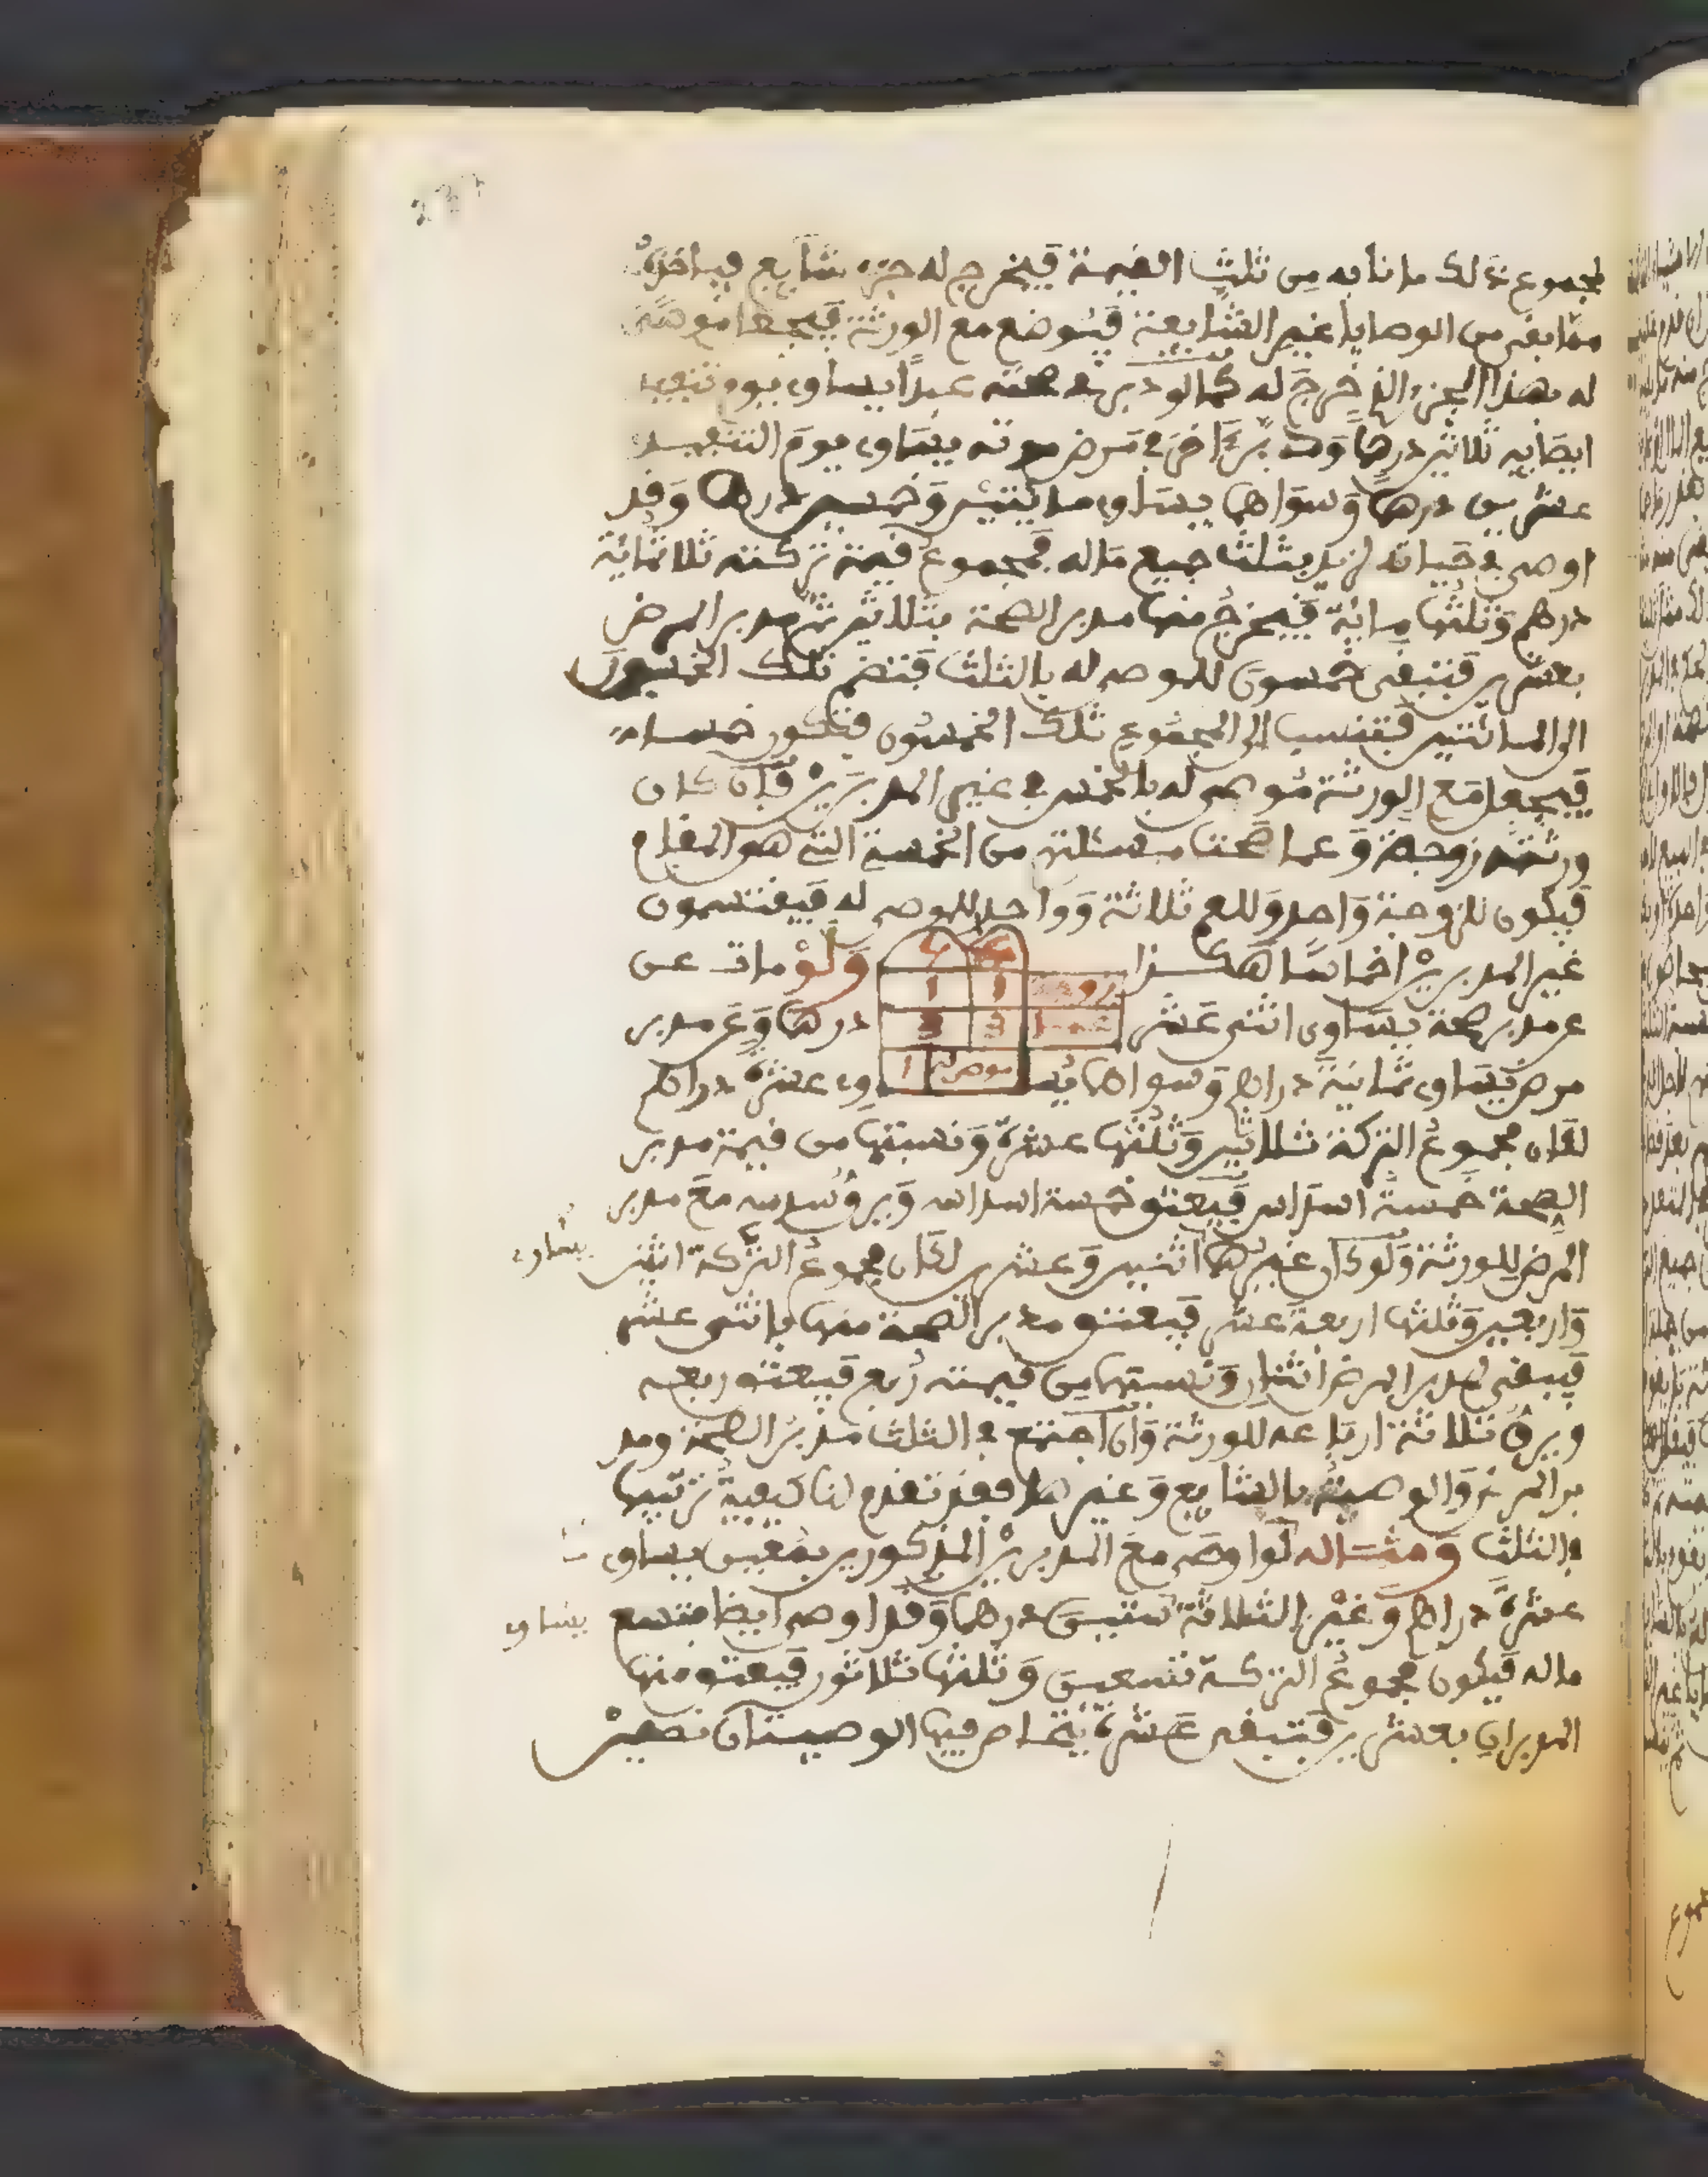 لمجموع ذلك ما نابه من ثلث القيمة فيخرج له جزء شايع فياخذه
مما بقي من الوصايا غير الشايعة فيوضع مع الورثة فيجعل موصى
له بهذا الجزء الذي خرج له كما لو دبر في صحته عبدا يساوي يوم تنفيذ
ايصائه ثلاثين درهما ودبر آخر في مرض موته يساوي يوم التنفيذ
عشرين درهما وسواهما يساوي مائتين وخمسين درهما وقد
اوصى في حياته لزيد بثلث جميع ماله فمجموع قيمة تركته ثلاثمائة
درهم وثلثها مائة فيخرج منها مدبر الصحة بثلاثين ثم مدبر المرض
بعشرين فتبقى خمسون للموصى له بالثلث فتضم تلك الخمسون
الى المائتين فتنسب الى المجموع تلك الخمسون فتكون خمسا
فيجعل مع الورثة موصى له بالخمس في غير المدبرين فان كان
ورثته زوجة وعما صحت مسئلتهم من الخمسة التي هو المقام
فيكون للزوجة واحد وللعم ثلاثة وواحد للموصى له فيقتسمون
غير المدبرين اخماسا هكذا ولو مات عن
عن مدبر صحة يساوي اثنى عشر درهما وعن مدبر
مرض يساوي ثمانية دراهم وسواهما يساوي عشرة دراهم
لكان مجموع التركة ثلاثين وثلثها عشرة ونسبتها من قيمة مدبر
الصحة خمسة اسداس فيعتق خمسة اسداسه ويرق سدسه مع مدبر
المرض للورثة ولو كان غيرهما اثنين وعشرين لكان مجموع التركة اثنين
يساوي
واربعين وثلثها اربعة عشر فيعتق مدبر الصحة منها باثنى عشر
فيبقى لمدبر المرض اثنان ونسبتها من قيمته ربع فيعتق ربعه
ويرق ثلاثة ارباعه للورثة وان اجتمع في الثلث مدبر الصحة ومد
بر المرض والوصية بالشايع وغيرها فقد تقدم لنا كيفية ترتيبها
في الثلث ومثاله لو اوصى مع المدبرين المذكورين بمعين يساوي
عشرة دراهم وغير الثلاثة ستين درهما وقد اوصى ايضا بتسع
يساوي
ماله فيكون مجموع التركة تسعين وثلثها ثلاثون فيعتق منها
المدبران بعشرين فتبقى عشرة يتحاص فيها الوصيتان نصفين